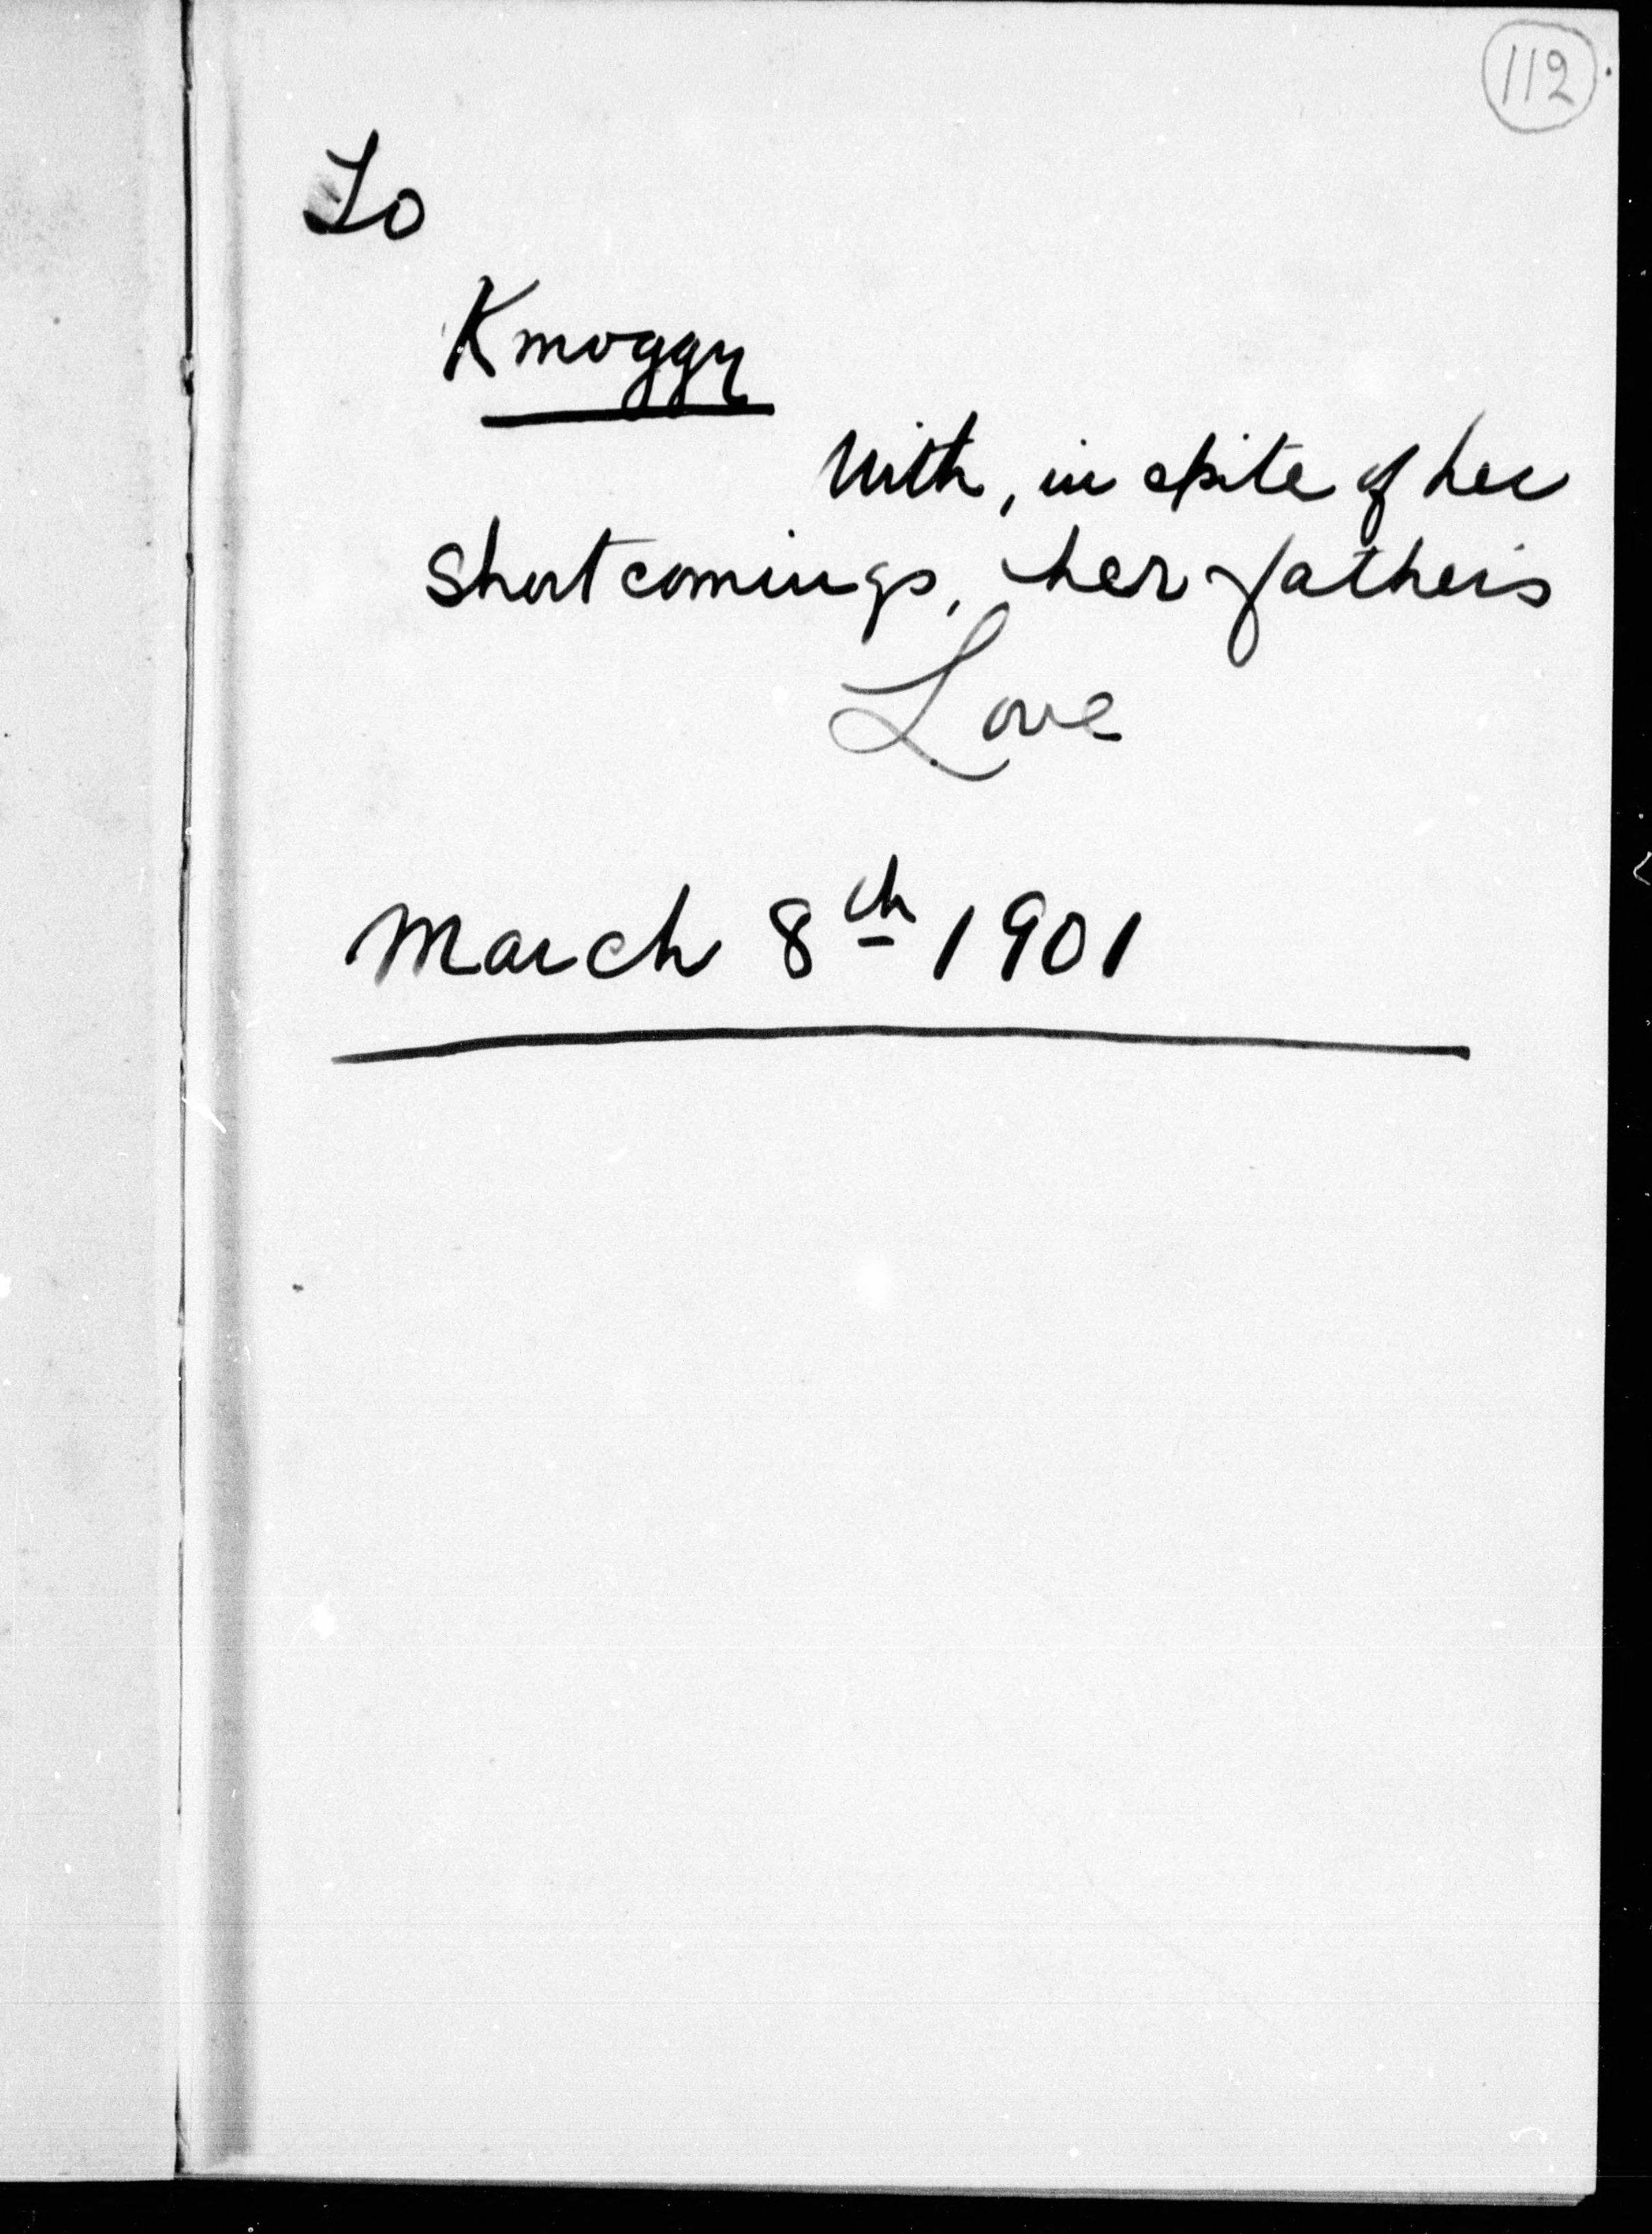 112
To
Kmoggy
With, in spite of her
Shortcomings, her father's
Love
March 8th 1901